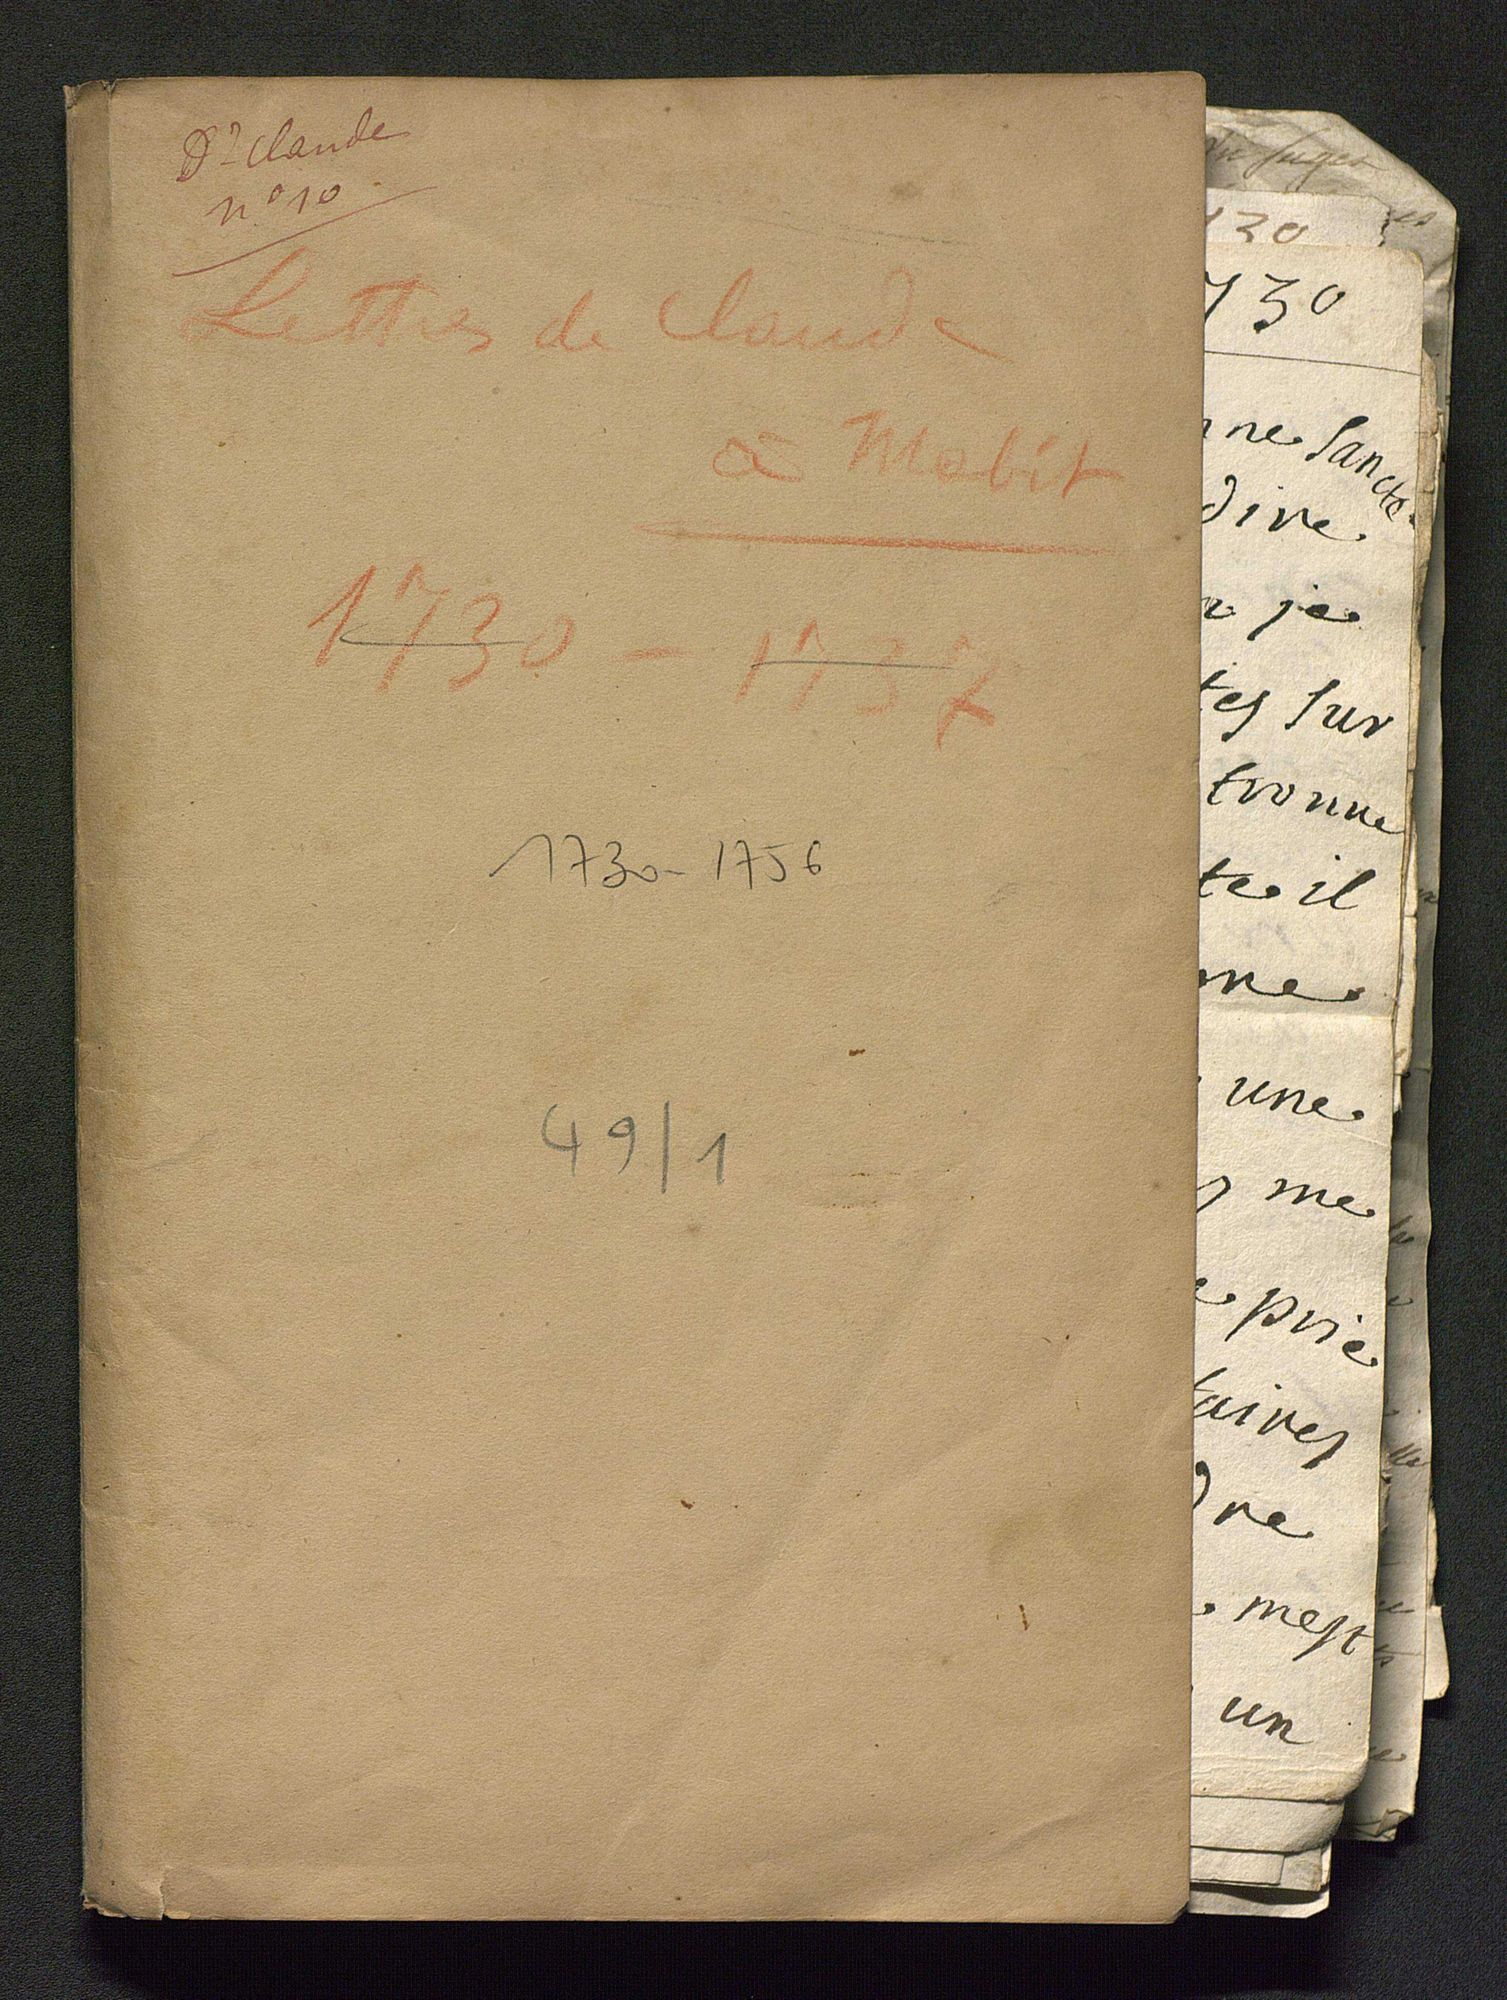 Dr Claude
n° 10
Lettres de Claude
à Mobit
1730 - 1737
1730 - 1756
49/1
130
730
ne Sancte
dire
je
tes sur
tronne
te il
me
une
me
prie
taires
dre
mest
un